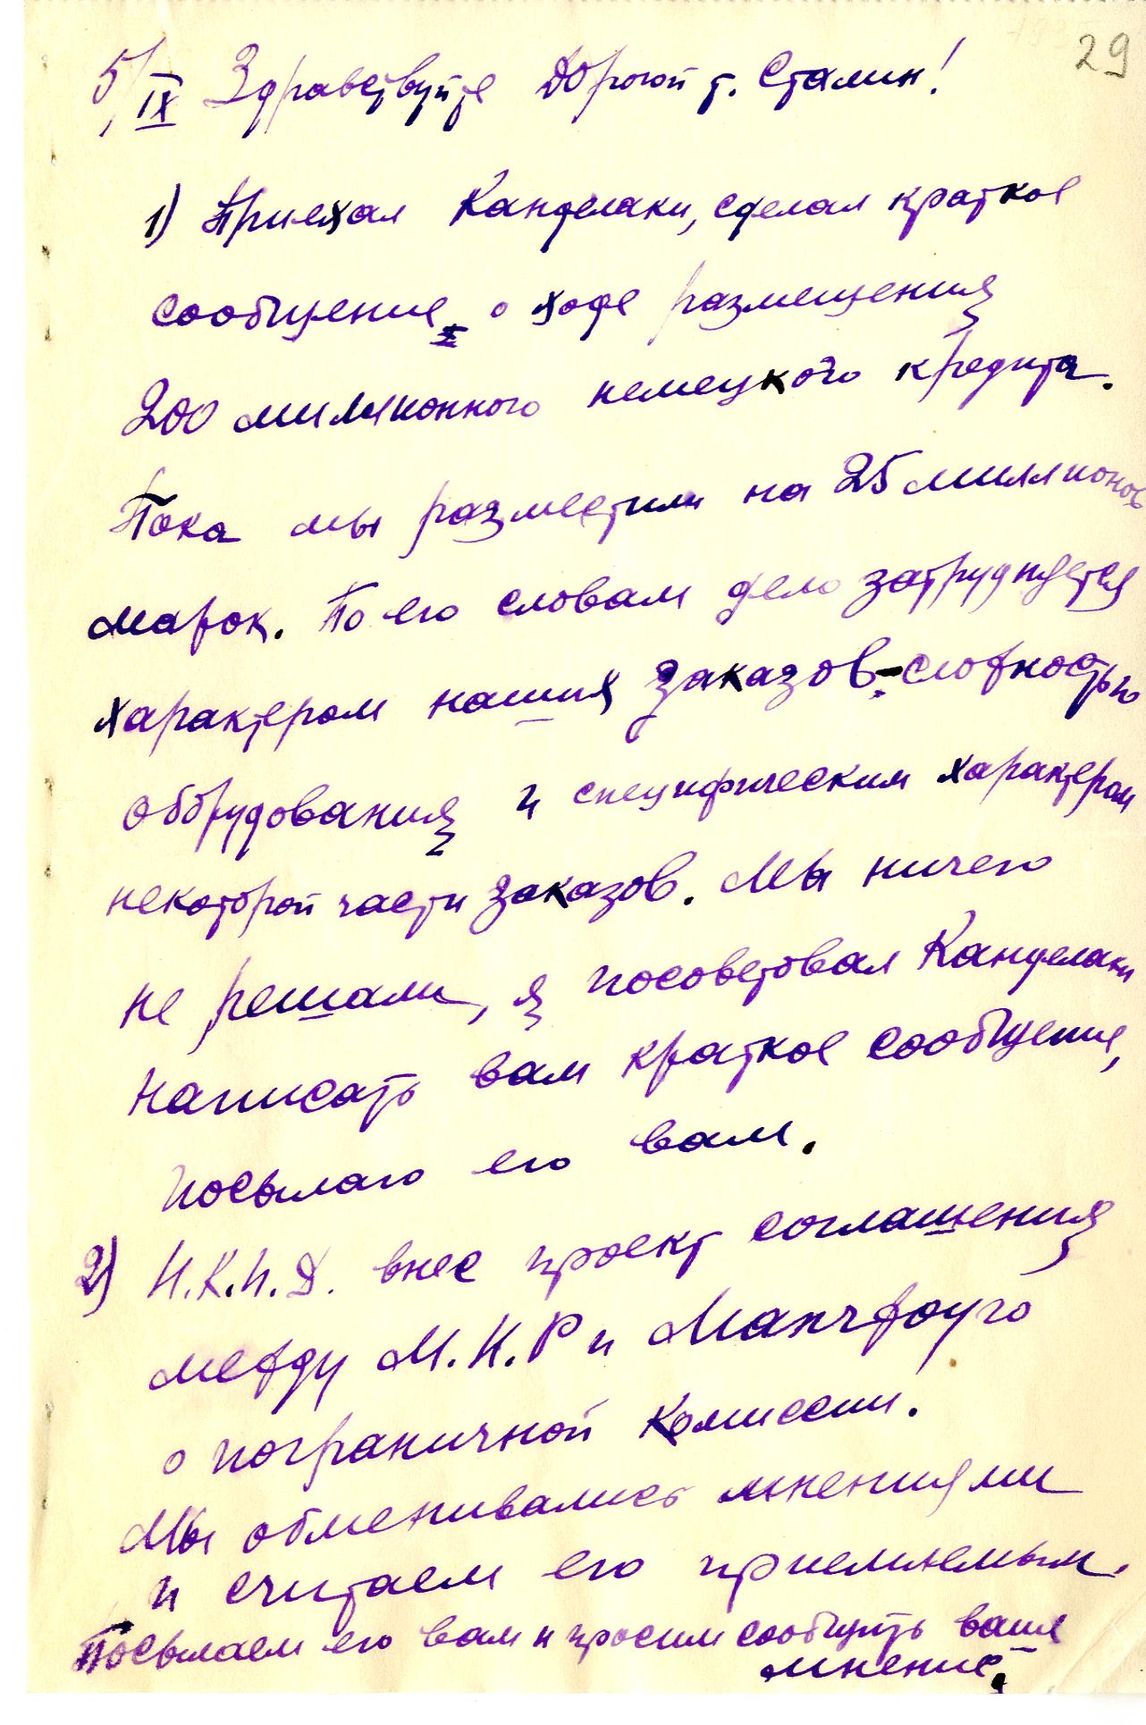 29
5/IX Здравствуйте Дорогой т. Сталин!
1) Приехал Канделаки, сделал краткое
сообщение о ходе размещения
200 миллионного немецкого кредита.
Пока мы разместили на 25 миллионов
марок. По его словам дело затрудняется
характером наших заказов-сложностью
оборудования и специфическим характером
некоторой части заказов. Мы ничего
не решали, я посоветовал Канделаки
написать вам краткое сообщение,
посылаю его вам.
2) Н.К.И.Д. внес проект соглашения
между М.Н.Р и Манчжоуго
о пограничной комиссии.
Мы обменивались мнениями
и считаем его приемлемым.
Посылаем его вам и просим сообщить ваше
мнение.